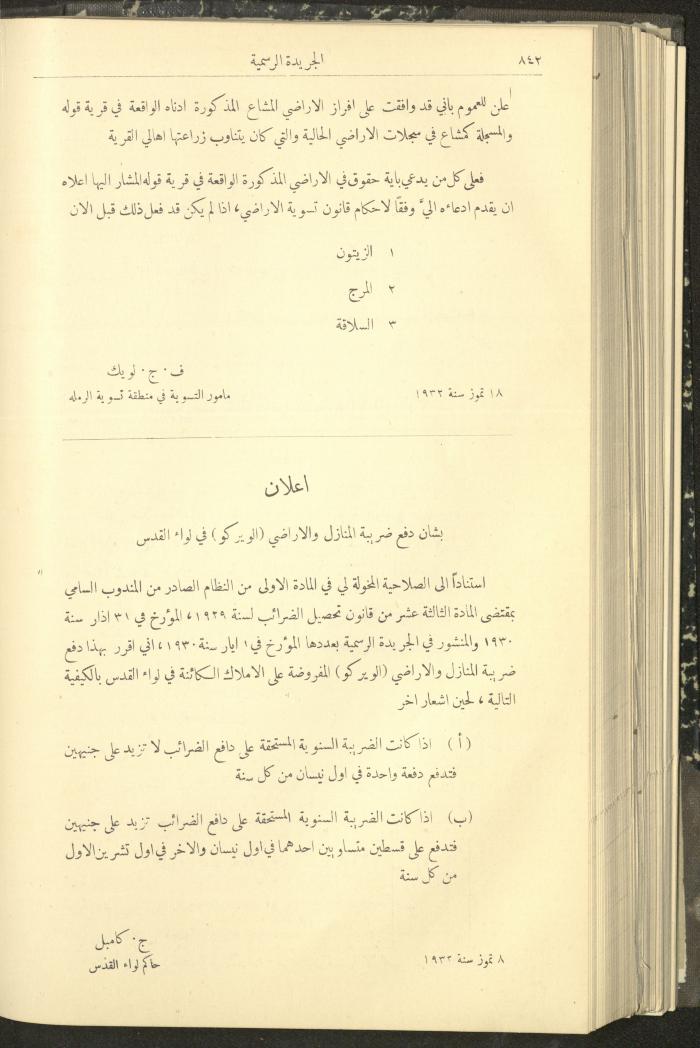 ٨٤٢
الجريدة الرسمية
اعلن للعموم باني قد وافقت على افراز الاراضي المشاع المذكورة ادناه الواقعة في قرية قوله
والمسجلة كمشاع في سجلات الاراضي الحالية والتي كان يتناوب زراعتها اهالي القرية
فعلى كل من يدعي باية حقوق في الاراضي المذكورة الواقعة في قرية قوله المشار اليها اعلاه
ان يقدم ادعاءه اليَّ وفقًا لاحكام قانون تسوية الاراضي، اذا لم يكن قد فعل ذلك قبل الان
١ الزيتون
٢ المرج
٣ السلاقة
ف. ج. لويك
١٨ تموز سنة ١٩٣٢
مامور التسوية في منطقة تسوية الرمله
اعلان
بشان دفع ضريبة المنازل والاراضي (الويركو) في لواء القدس
استناداً الى الصلاحية المخولة لي في المادة الاولى من النظام الصادر من المندوب السامي
بمقتضى المادة الثالثة عشر من قانون تحصيل الضرائب لسنة ١٩٢٩، المؤرخ في ٣١ اذار سنة
١٩٣٠ والمنشور في الجريدة الرسمية بعددها المؤرخ في ١ ايار سنة ١٩٣٠، اني اقرر بهذا دفع
ضريبة المنازل والاراضي (الويركو) المفروضة على الاملاك الكائنة في لواء القدس بالكيفية
التالية، لحين اشعار اخر
(أ) اذا كانت الضريبة السنوية المستحقة على دافع الضرائب لا تزيد على جنيهين
فتدفع دفعة واحدة في اول نيسان من كل سنة
(ب) اذا كانت الضريبة السنوية المستحقة على دافع الضرائب تزيد على جنيهين
فتدفع على قسطين متساويين احدهما في اول نيسان والاخر في اول تشرين الاول
من كل سنة
ج. كامبل
٨ تموز سنة ١٩٣٢
حاكم لواء القدس